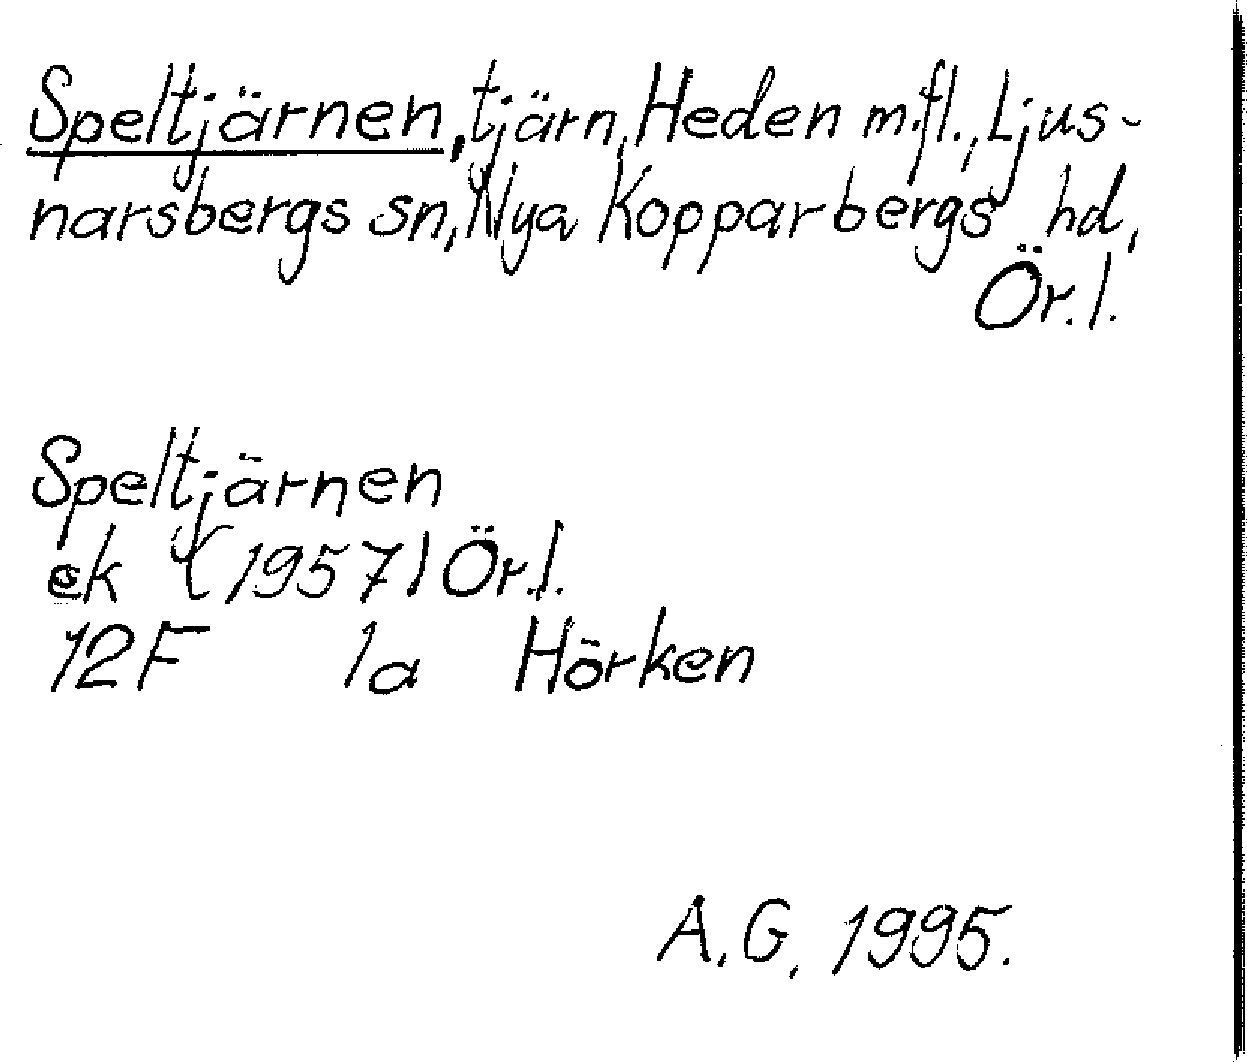 Speltjärnen, tjärn, Heden m.fl., Ljus-
narsbergs sn, Nya Kopparbergs hd,
Ör.l.
Speltjärnen
ek (1957) Ör.l.
12F 1a Hörken
A.G. 1995.